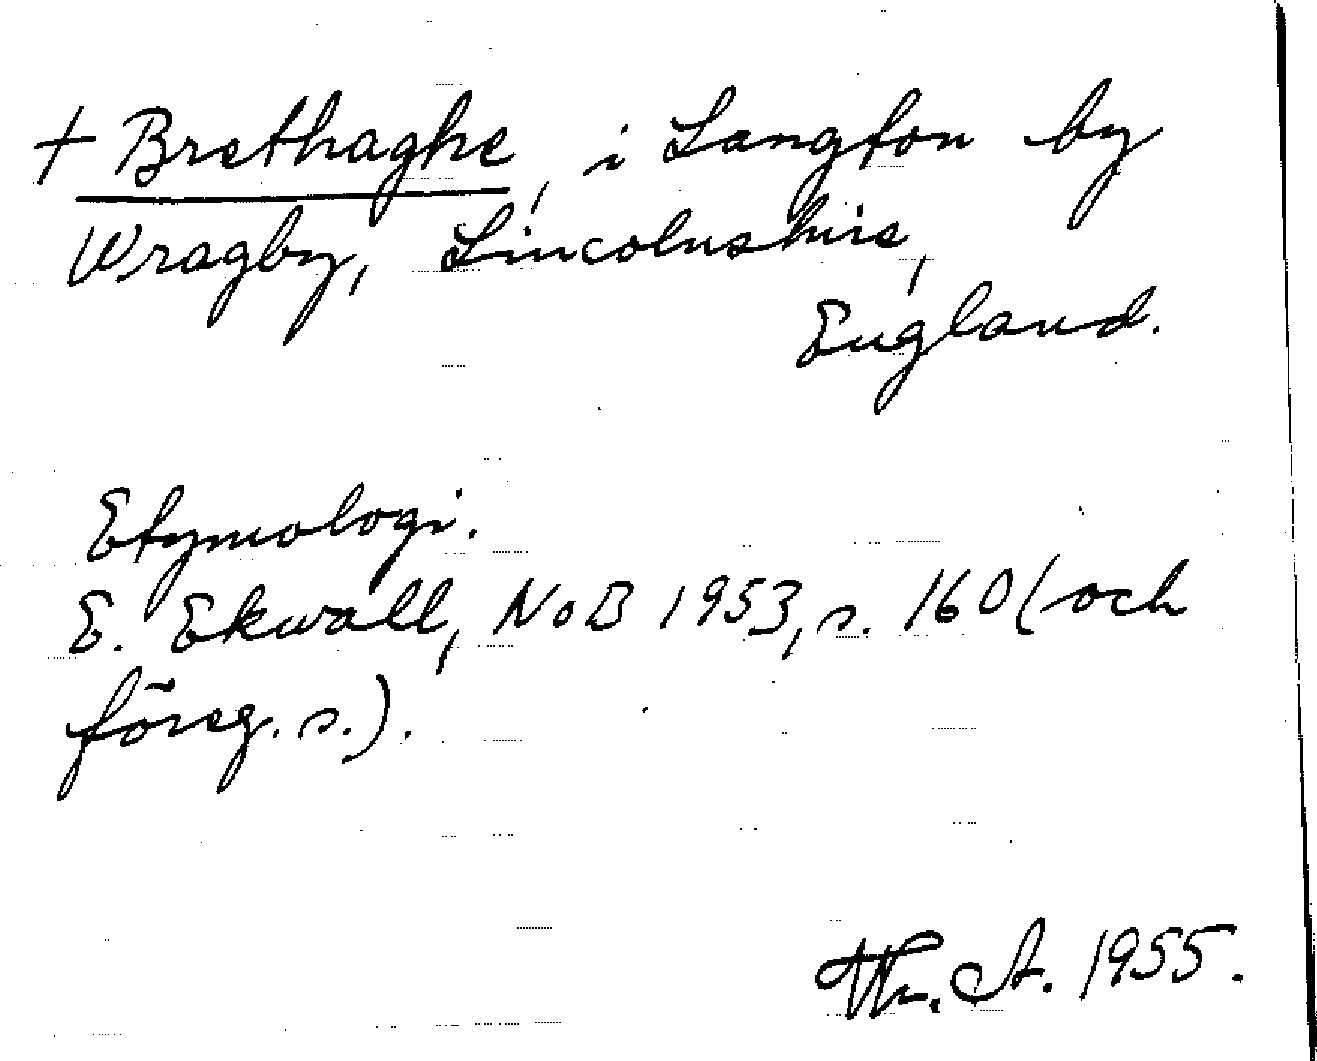 + Brethaghe, i Langton by
Wragby, Lincolnshire,
England.
Etymologi.
E. Ekwall, NoB 1953, s. 160 (och
föreg. s.).
Th. A. 1955.